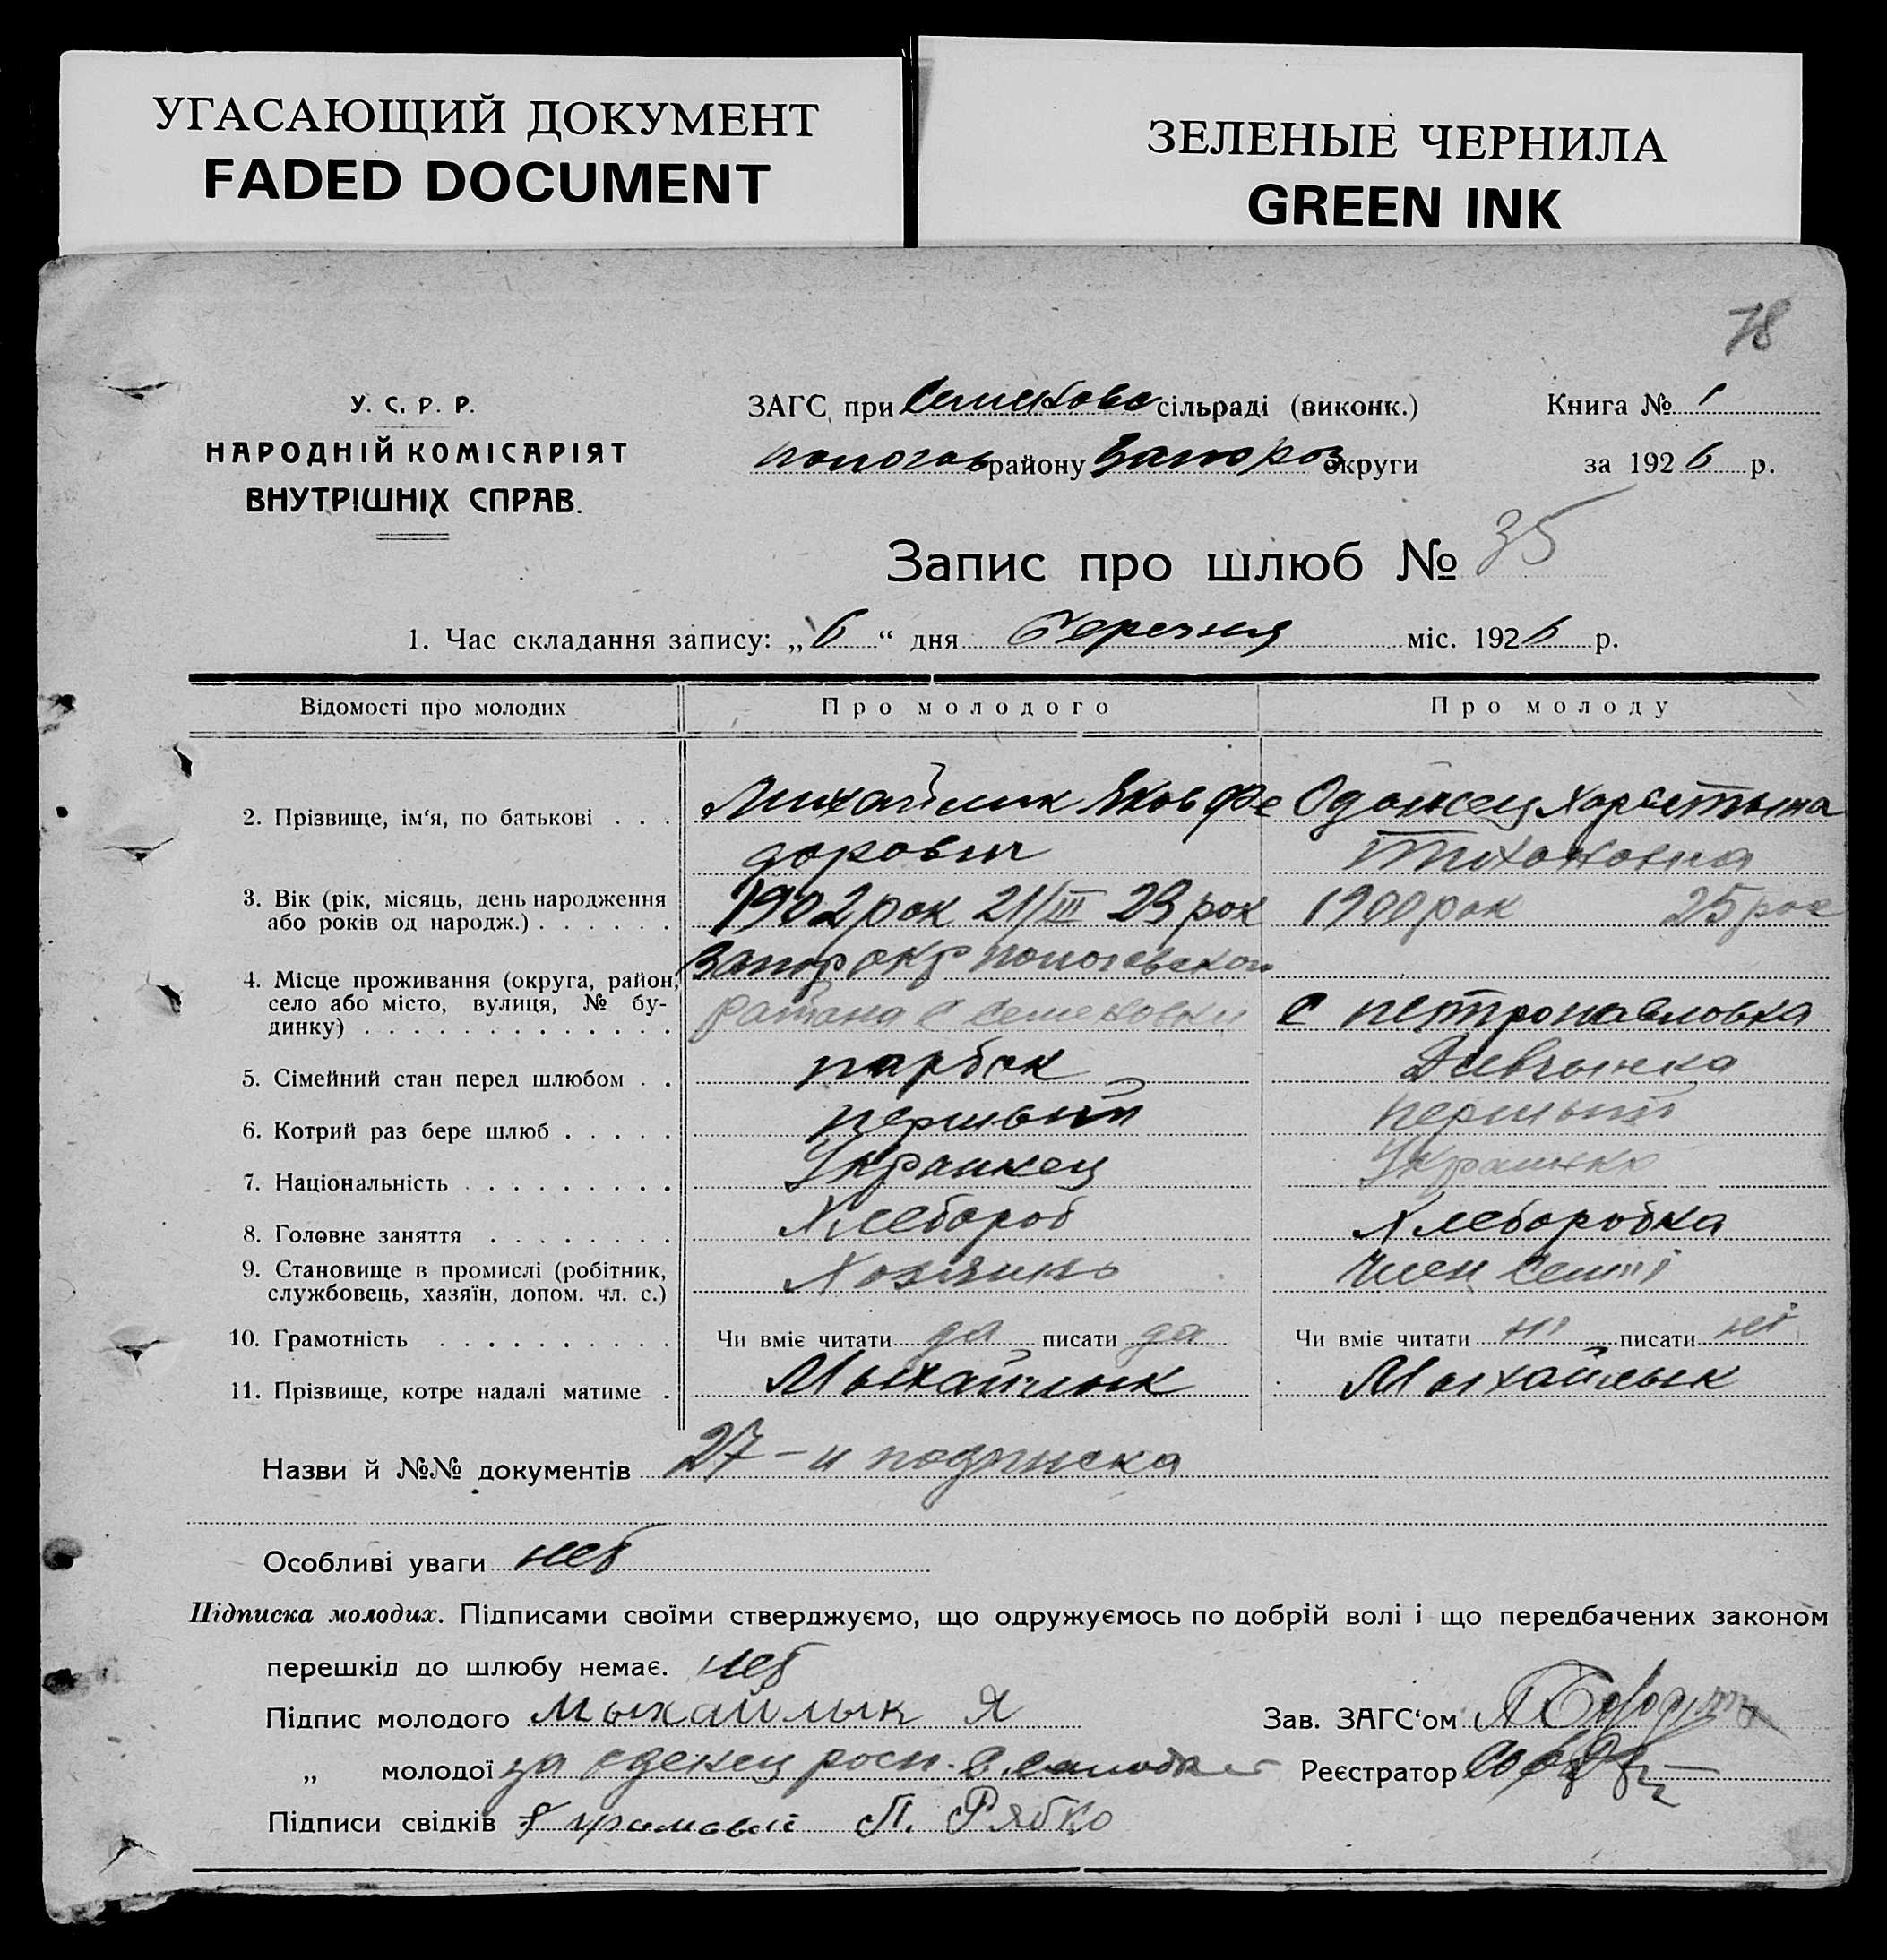 УГАСАЮЩИЙ ДОКУМЕНТ
FADED DOCUMENT
ЗЕЛЕНЫЕ ЧЕРНИЛА
GREEN INK
78
У. С. Р. Р.
НАРОДНІЙ КОМІСАРІЯТ
ВНУТРІШНІХ СПРАВ.
ЗАГС при Семеново сільраді (виконк.)
пологов району Запороз округи
Книга № 1
за 1926 р.
Запис про шлюб № 35
1. Час складання запису: „6“ дня Березня міс. 1926 р.
Відомості про молодих Про молодого Про молоду
2. Прізвище, ім‘я, по батькові . . . Михайлик Яков Фе Одонец Харестына
дорович Тихоновна
3. Вік (рік, місяць, день народження
або років од народж.) . . . . . . 1902 рок 21/III 23 рок 1900 рок 25 рос
4. Місце проживання (округа, район, Запор окр пологовском
село або місто, вулиця, № бу-
динку) . . . . . . . . . . . . . района с Семеновки с петропавловка
5. Сімейний стан перед шлюбом . . парбок Дивчынка
6. Котрий раз бере шлюб . . . . . першый першый
7. Національність . . . . . . . . . Украинец Украинка
8. Головне заняття . . . . . . . . Хлебороб Хлеборобка
9. Становище в промислі (робітник,
службовець, хазяїн, допом. чл. с.) Хозяинь Член семї
10. Грамотність . . . . . . . . . . Чи вміє читати да писати да Чи вміє читати ні писати неі
11. Прізвище, котре надалі матиме . Мыхайлык Мыхайлык
Назви й №№ документів 27 – и подписка
Особливі уваги нет
Підписка молодих. Підписами своїми стверджуємо, що одружуємось по добрій волі і що передбачених законом
перешкід до шлюбу немає. нет
Підпис молодого Мыхайлык Я
Зав. ЗАГС‘ом
„ молодої за оденец росп. С.
Реєстратор
Підписи свідків П. Рябко